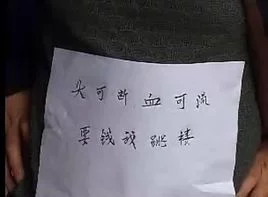 头可断血可流
要钱我跳楼